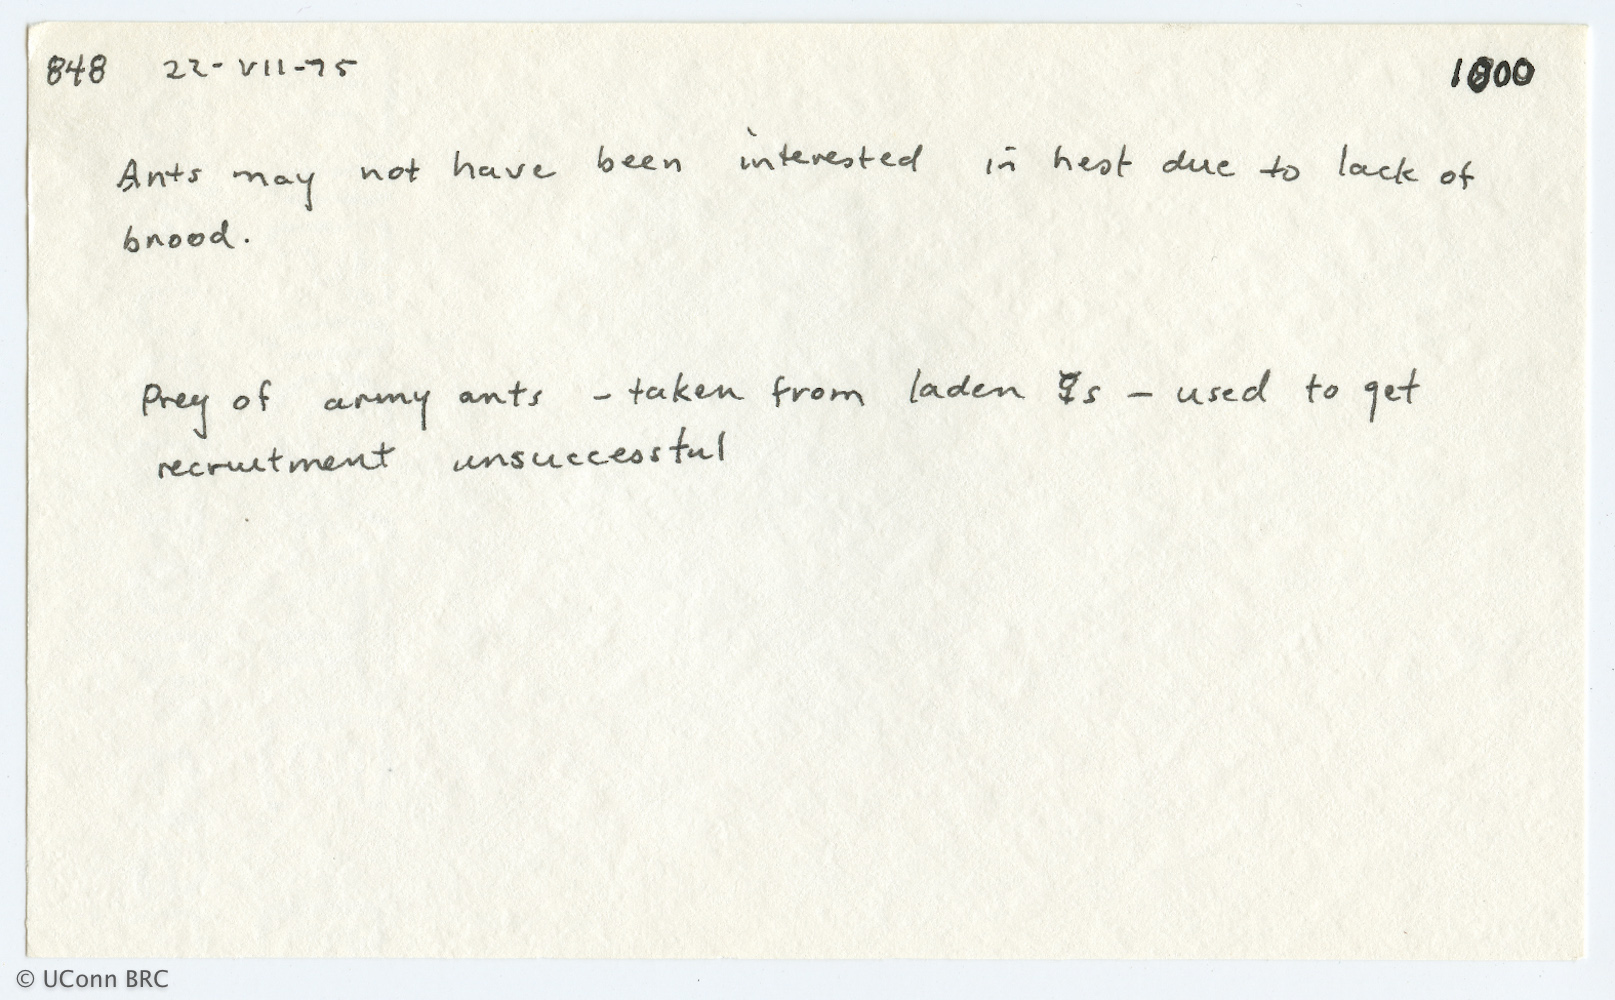 848 22-VII-75 1000
Ants may not have been interested in nest due to lack of
brood.
Prey of army ants - taken from laden ☿s - used to get
recruitment unsuccessful
© UConn BRC